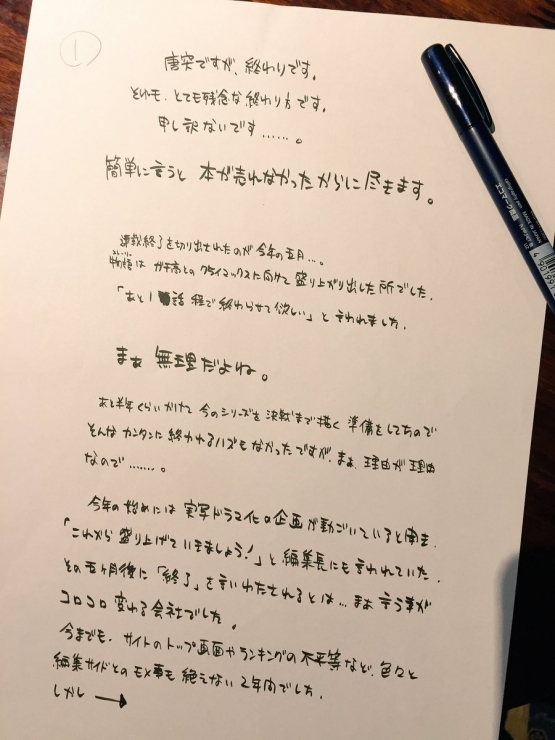 ①
唐突ですが、終わりです。
それも、とても残念な終わり方です。
申し訳ないです……。
簡単に言うと 本が売れなかったからに尽きます。
連載終了を切り出されたのが今年の五月…。
物語は ガチ高との クライマックスに向けて 盛り上がり出した所でした。
ストーリー
「あと1 話 程で終わらせて欲しい」と言われました。
まぁ 無理だよね。
あと半年くらいかけて 今のシリーズを決戦まで描く 準備をしてたので
そんな カンタンに終われるハズもなかったですが、まぁ、理由が理由
なので……。
今年の始めには 実写ドラマ化の企画が動いていると聞き、
「これから盛り上げていきましょう!」と編集長にも言われていた。
その五ヶ月後に「終了」を言いわたされるとは… まぁ 言う事が
コロコロ変わる会社でした。
今までも、サイトのトップ画面やランキングの不平等など、色々と
編集サイドとのモメ事も絶えない2年間でした。
しかし →
calligraphy pen
エコマーク商品
MADE IN JAPAN